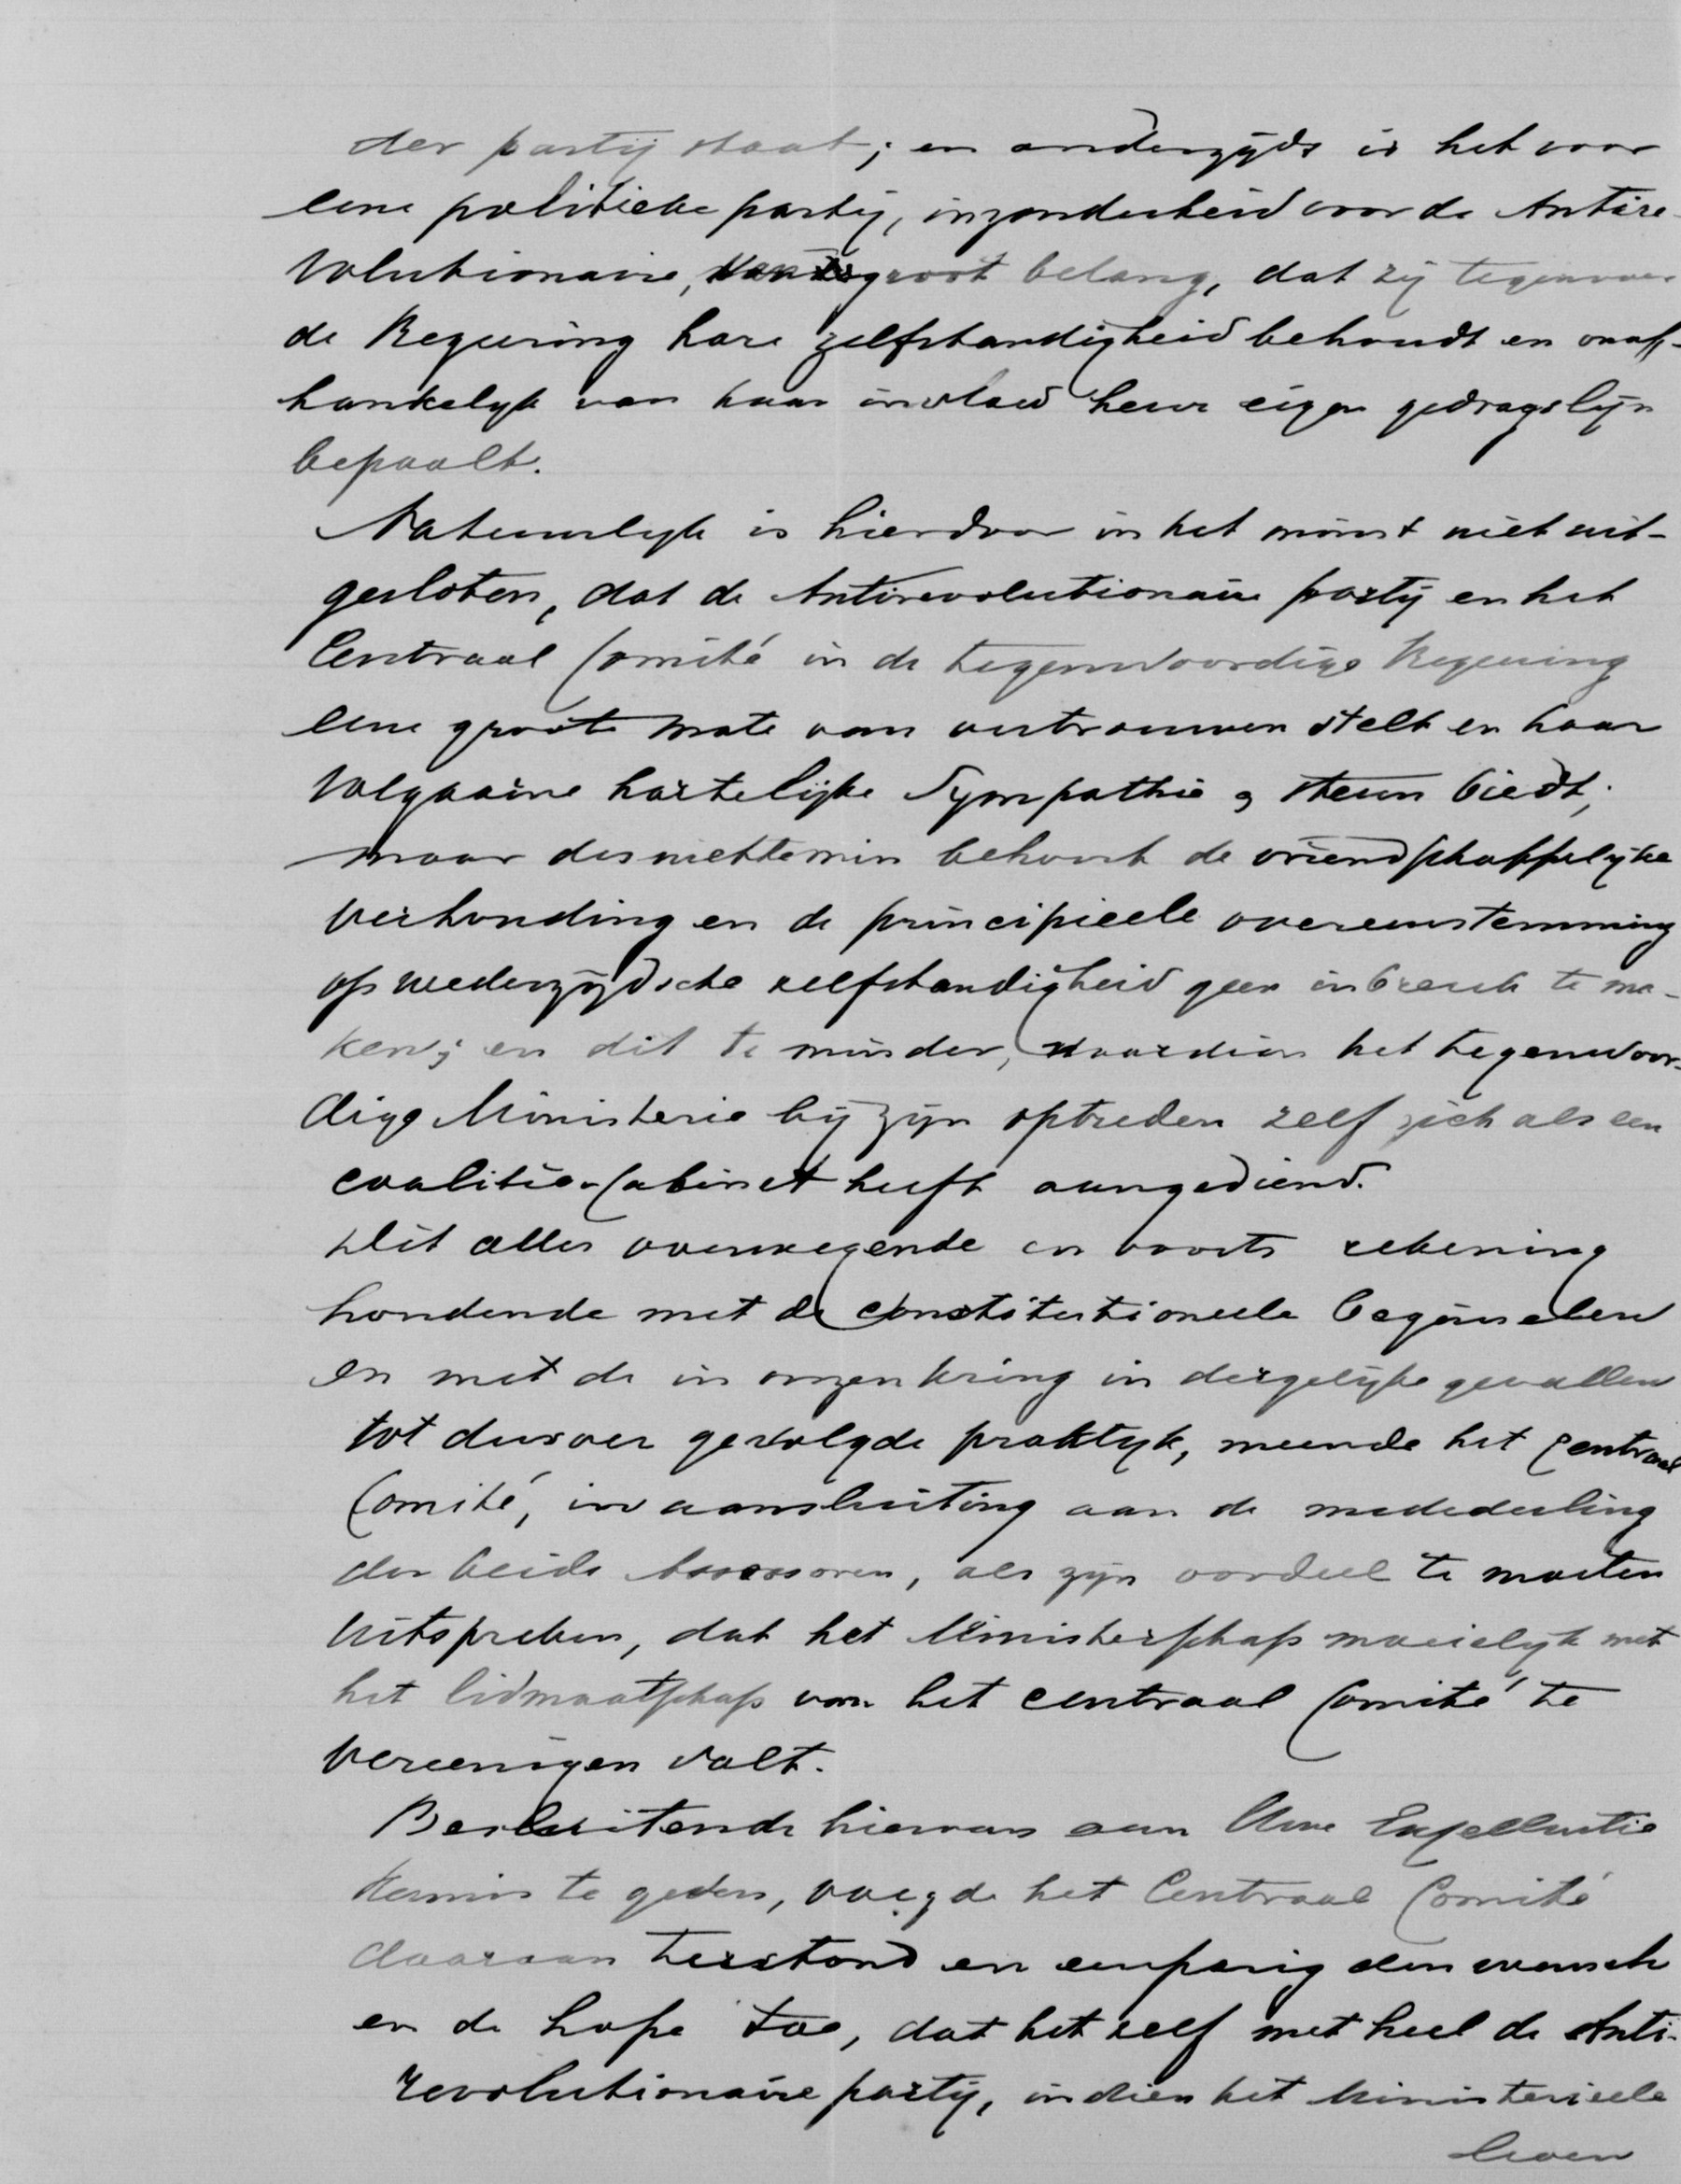 der partij staat; en anderzijds is het voor
eene politieke partij, inzonderheid voor de Antire-
volutionaire, van groot belang, dat zij tegenover
de Regeering hare zelfstandigheid behoudt en onaf-
hankelijk van haar invloed heur eigen gedragslijn
bepaalt.
Natuurlijk is hierdoor in het minst niet uit-
gesloten, dat de Antirevolutionaire partij en het
Centraal Comité in de tegenwoordige Regeering
eene groote mate van vertrouwen stelt en haar
volgaarne hartelijke sympathie & steun biedt;
maar desniettemin behoort de vriendschappelijke
verhouding en de principieele overeenstemming
op wederzijdsche zelfstandigheid geen inbreuk te ma-
ken; en dit te minder, naardien het tegenwoor-
dige Ministerie bij zijn optreden zelf zich als een
coalitie-Cabinet heeft aangediend.
Dit alles overwegende en voorts rekening
houdende met de constitutioneele beginselen
en met de in onzen kring in dergelijke gevallen
tot dusver gevolgde praktijk, meende het Centraal
Comité, in aansluiting aan de mededeeling
der beide Assessoren, als zijn oordeel te moeten
uitspreken, dat het Ministerschap moeielijk met
het lidmaatschap van het Centraal Comité te
vereenigen valt.
Besluitende hiervan aan Uwe Excellentie
kennis te geven, voegde het Centraal Comité
daaraan terstond en eenparig den wensch
en de hope toe, dat het zelf met heel de Anti-
revolutionaire partij, indien het Ministerieele
leven